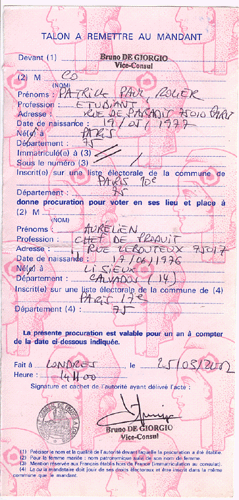 TALON A REMETTRE AU MANDANT
Devant (1) Bruno DE GIORGIO
Vice-Consul
(2) M
(NOM)
Prénoms : PATRICK PAUL ROGER
Profession : ETUDIANT
Adresse : RUE DE PARADIS 75010 PARIS
Date de naissance : 1977
Né(e) à PARIS
Département : 75
Immatriculé(e) à (3)
Sous le numéro (3)
Inscrit(e) sur une liste électorale de la commune de
PARIS 10e
Département : 75
donne procuration pour voter en ses lieu et place à
(2) M
(NOM)
Prénoms : AURELIEN
Profession : CHEF DE PRODUIT
Adresse : RUE LEBOUTEUX 75017
Date de naissance : 1976
Né(e) à LISIEUX
Département : CALVADOS (14)
Inscrit(e) sur une liste électorale de la commune de (4)
PARIS 17e
Département (4) : 75
La présente procuration est valable pour un an à compter
de la date ci-dessous indiquée.
Fait à LONDRES le 2002
Heure : 14H00
Signature et cachet de l'autorité ayant délivré l'acte :
Bruno DE GIORGIO
Vice-Consul
(1) Préciser le nom et la qualité de l'autorité devant laquelle la procuration a été établie.
(2) Pour la femme mariée : nom patronymique suivi de son nom de femme.
(3) Mention réservée aux Français établis hors de France (immatriculation au consulat).